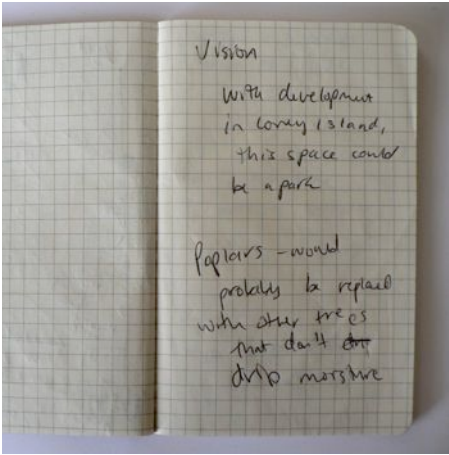 Vision
with development
in Coney Island,
this space could
be a park
Poplars - would
probably be replaced
with other trees
that don't
drip moisture